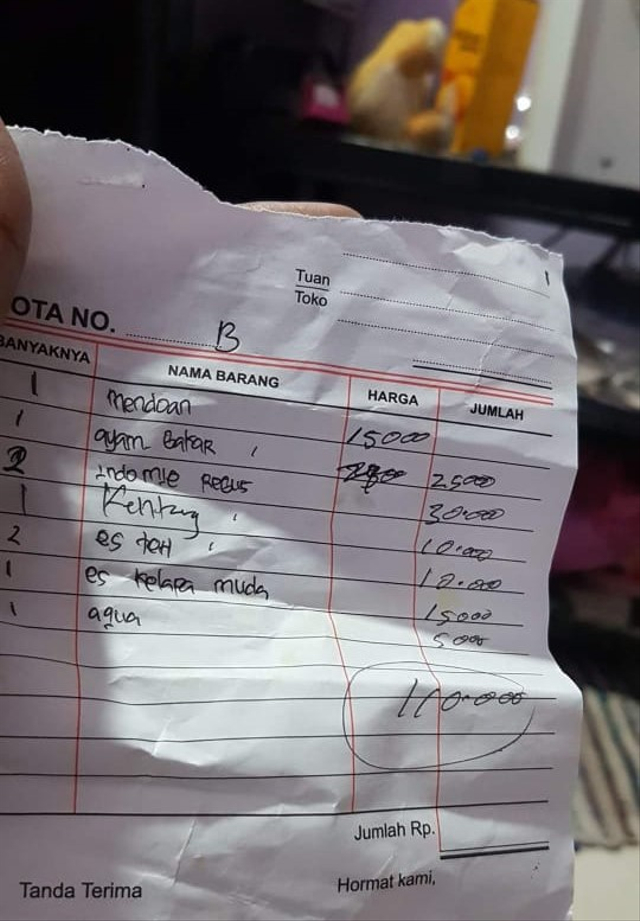 Tuan
Toko
OTA NO. B
BANYAKNYA NAMA BARANG HARGA JUMLAH
1 mendoan 15000
1 ayam Bakar 25000
2 indomie Rebus 30.000
1 Kentang 10.000
2 es teh 10.000
1 es kelapa muda 15000
1 aqua 5000
110.000
Jumlah Rp.
Tanda Terima Hormat kami,